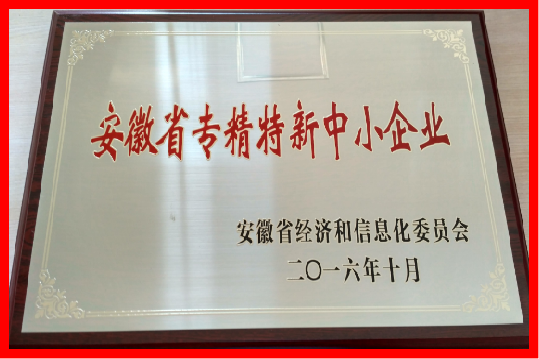 安徽省专精特新中小企业
安徽省经济和信息化委员会
二〇一六年十月